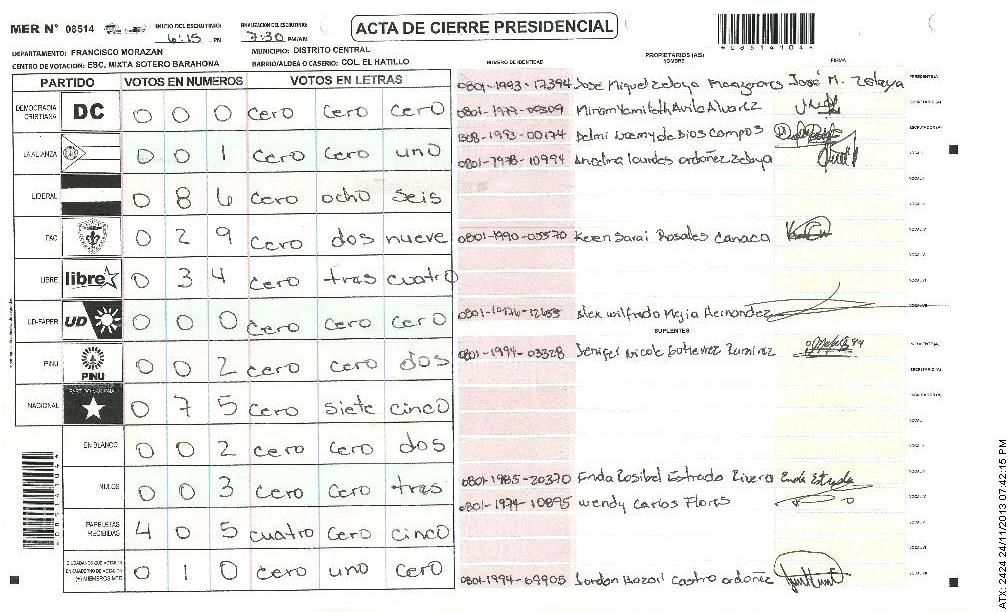 MER N° 08514
INICIO DEL ESCRUTINIO: 6:15 PM
FINALIZACION DEL ESCRUTINIO: 7:30 PM/AM
ACTA DE CIERRE PRESIDENCIAL
DEPARTAMENTO: FRANCISCO MORAZAN
MUNICIPIO: DISTRITO CENTRAL
CENTRO DE VOTACION: ESC. MIXTA SOTERO BARAHONA
BARRIO/ALDEA O CASERIO: COL. EL HATILLO
PARTIDO VOTOS EN NUMEROS VOTOS EN LETRAS
DEMOCRACIA CRISTIANA DC 0 0 0 cero cero cero
LA ALIANZA 0 0 1 cero cero uno
LIBERAL 0 8 6 cero ocho seis
PAC 0 2 9 cero dos nueve
LIBRE libre 0 3 4 cero tras cuatro
UD-FAPER UD 0 0 0 cero cero cero
PINU PINU 0 0 2 cero cero dos
NACIONAL PARTIDO NACIONAL 0 7 5 cero siete cinco
EN BLANCO 0 0 2 cero cero dos
NULOS 0 0 3 cero cero tras
PAPELETAS RECIBIDAS 4 0 5 cuatro cero cinco
CIUDADANOS QUE VOTARON EN CUADERNO DE VOTACION (+) MIEMBROS MER 0 1 0 cero uno cero
NUMERO DE IDENTIDAD PROPIETARIOS (AS) NOMBRE FIRMA
0801-1993-17394 Jose Miguel Zelaya José M. Zelaya PRESIDENTE(A)
0801-1977-00309 Miriam Yamileth Avila Alvarez SECRETARIO (A)
-1993-00174 Delmi Noemy de Dios Campos ESCRUTADOR (A)
0801-1978-10994 Ancelma lourdes ordoñez Zelaya VOCAL I
0801-1990-03570 Keren Sarai Rosales Canaca
Alex wilfredo Mejia Hernandez
SUPLENTES
0801-1994-03328 Jenifer Nicole Gutierrez Ramirez
SECRETARIO (A)
0801-1985-20370 Enda Rosibel Estrada Rivera Enda Estrada
0801-1974-10895 Wendy Carlos Flores
0801-1994-69905 Jordon Castro ordoñez
ATX: 2424 24/11/2013 07:42:15 PM